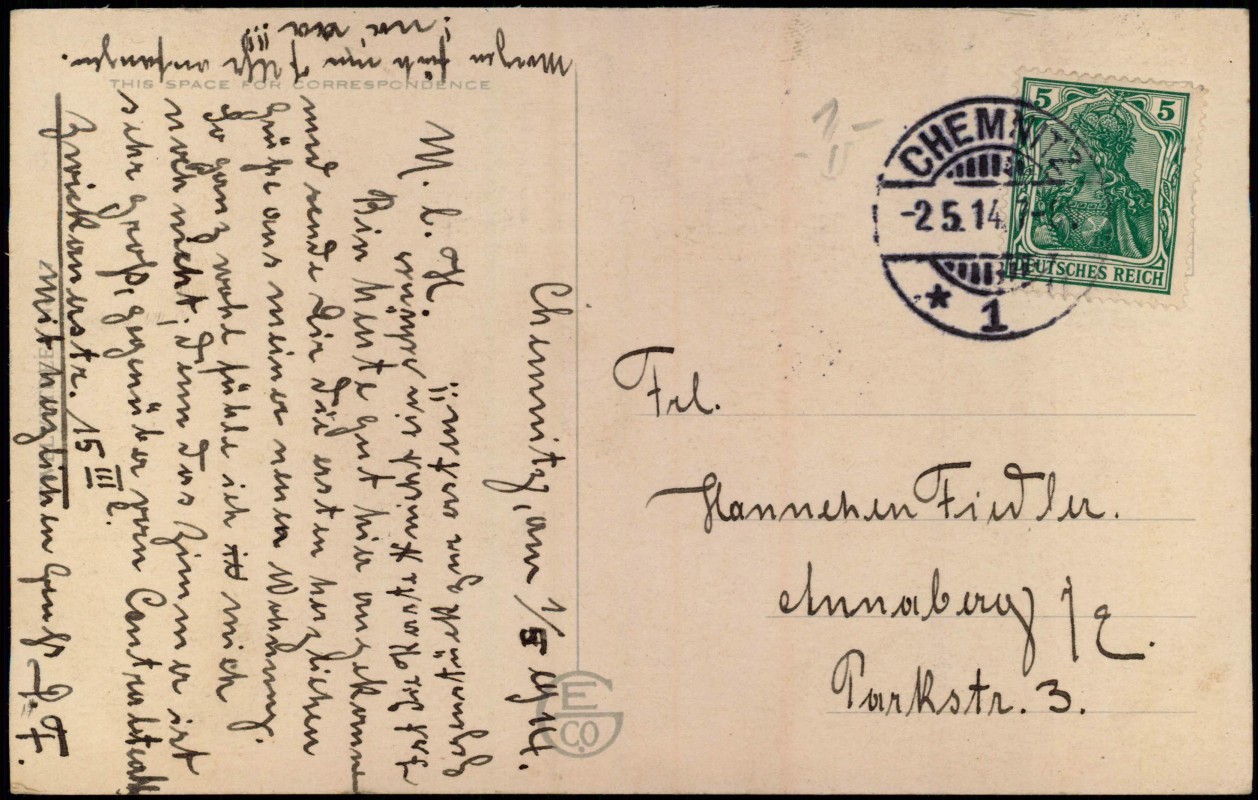 THIS SPACE FOR CORRESPONDENCE
Chemnitz, am 1/5 1914.
M. l. H.
Bin heute gut hier angekommen
und sende Dir die ersten herzlichen
Grüße aus meiner neuen Wohnung.
So ganz wohl fühle ich mich
noch nicht, denn das Zimmer ist
sehr groß, gegenüber vom Centralteath
Zwickauerstr. 15 III l.
Mit herzlichem Gruß
F.
Morgen früh um 7 Uhr anfangen.
! na !!!
5 5
DEUTSCHES REICH
CHEMNITZ
-2.5.14.
* 1
Frl.
Hannchen Fiedler.
Annaberg /E.
Parkstr. 3.
E
C.O